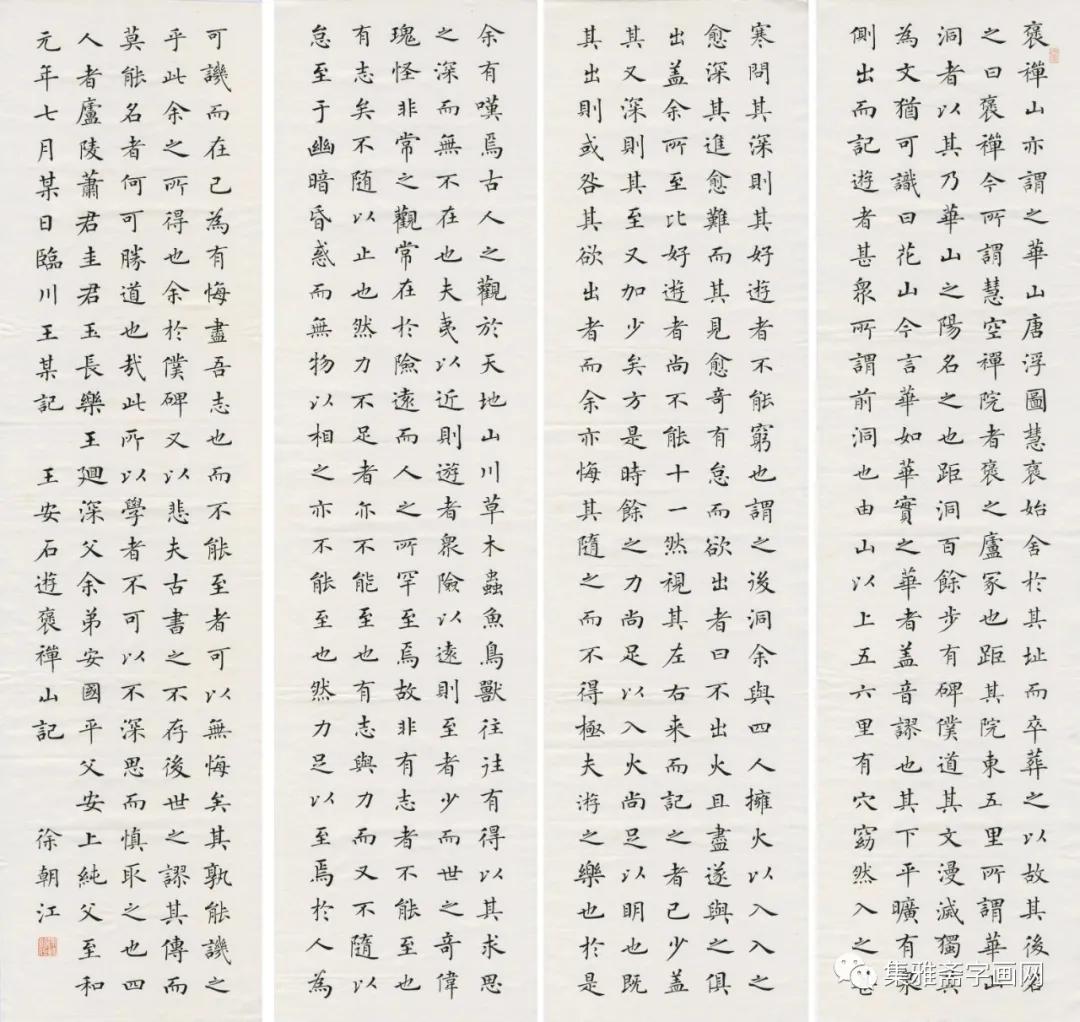 褒禪山亦謂之華山唐浮圖慧褒始舍於其址而卒葬之以故其後名
之曰褒禪今所謂慧空禪院者褒之廬冢也距其院東五里所謂華山
洞者以其乃華山之陽名之也距洞百餘步有碑僕道其文漫滅獨其
為文猶可識曰花山今言華如華實之華者盖音謬也其下平曠有泉
側出而記遊者甚衆所謂前洞也由山以上五六里有穴窈然入之甚
寒問其深則其好遊者不能窮也謂之後洞余與四人擁火以入入之
愈深其進愈難而其見愈奇有怠而欲出者曰不出火且盡遂與之俱
出盖余所至比好遊者尚不能十一然視其左右来而記之者已少盖
其又深則其至又加少矣方是時餘之力尚足以入火尚足以明也既
其出則或咎其欲出者而余亦悔其隨之而不得極夫游之樂也於是
余有嘆焉古人之觀於天地山川草木蟲魚鳥獸往往有得以其求思
之深而無不在也夫夷以近則遊者衆險以遠則至者少而世之奇偉
瑰怪非常之觀常在於險遠而人之所罕至焉故非有志者不能至也
有志矣不隨以止也然力不足者亦不能至也有志與力而又不隨以
怠至于幽暗昏惑而無物以相之亦不能至也然力足以至焉於人為
可譏而在己為有悔盡吾志也而不能至者可以無悔矣其孰能譏之
乎此余之所得也余於僕碑又以悲夫古書之不存後世之謬其傳而
莫能名者何可勝道也哉此所以學者不可以不深思而慎取之也四
人者廬陵蕭君圭君玉長樂王廻深父余弟安國平父安上純父至和
元年七月某日臨川王某記 王安石遊褒禪山記 徐朝江
集雅斋字画网